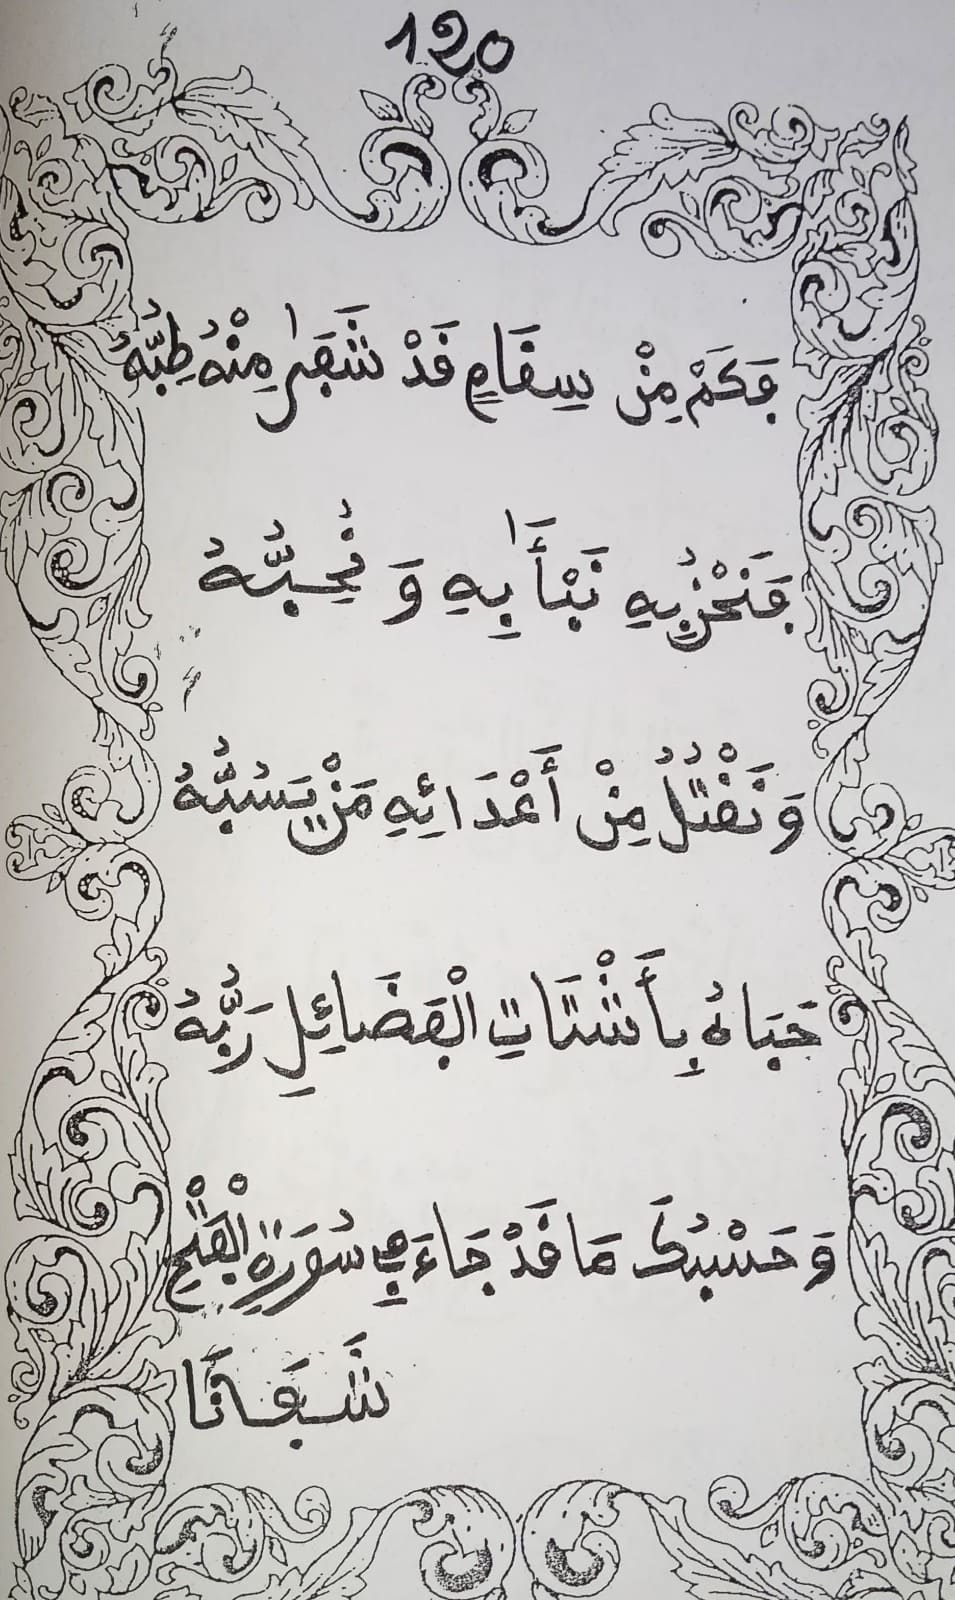 120
فَكَمْ مِنْ سِقَامٍ قَدْ شَفَىٰ مِنْهُ طِبُّهُ
فَنَحْنُ بِهِ نَبْأَىٰ بِهِ وَنُحِبُّهُ
وَنَقْتُلُ مِنْ أَعْدَائِهِ مَنْ يَسُبُّهُ
حَبَاهُ بِأَشْتَاتِ الْفَضَائِلِ رَبُّهُ
وَحَسْبُكَ مَا قَدْ جَاءَ فِي سُورَةِ الْفَتْحِ
شَفَانَا